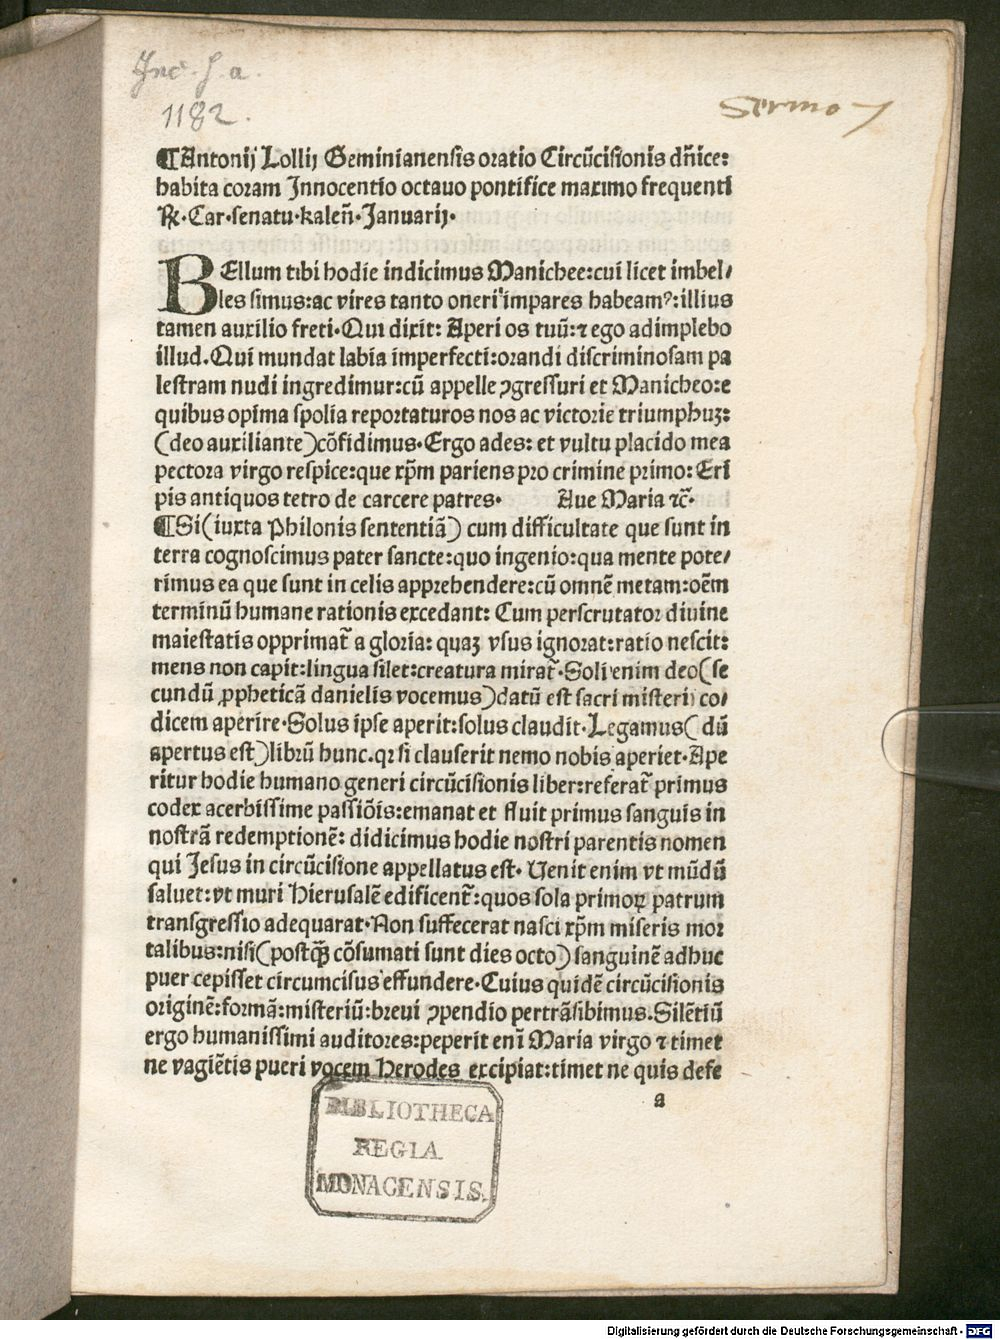 Inc. s. a.
1182.
Sermo 7
¶Antonij Lollij Geminianensis oratio Circūcisionis dn̄ice:
habita coram Innocentio octauo pontifice maximo frequenti
R̄. Car. senatu. kaleñ. Januarij.
BEllum tibi hodie indicimus Manichee: cui licet imbel/
les simus: ac vires tanto oneri impares habeamꝰ: illius
tamen auxilio freti. Qui dixit: Aperi os tuū: ⁊ ego adimplebo
illud. Qui mundat labia imperfecti: orandi discriminosam pa
lestram nudi ingredimur: cū appelle ꝯgressuri et Manicheo: e
quibus opima spolia reportaturos nos ac victorie triumphuȝ:
(deo auxiliante) cōfidimus. Ergo ades: et vultu placido mea
pectora virgo respice: que xp̄m pariens pro crimine primo: Eri
pis antiquos tetro de carcere patres. Aue Maria ⁊c̄.
¶Si (iuxta Philonis sententiā) cum difficultate que sunt in
terra cognoscimus pater sancte: quo ingenio: qua mente pote/
rimus ea que sunt in celis apprehendere: cū omnē metam: oēm
terminū humane rationis excedant: Cum perscrutator diuine
maiestatis opprimat̄ a gloria: quaȝ vsus ignorat: ratio nescit:
mens non capit: lingua silet: creatura mirat̄. Soli enim deo (se
cundū ꝓpheticā danielis vocemus) datū est sacri misterij co/
dicem aperire. Solus ipse aperit: solus claudit. Legamus (dū
apertus est) librū hunc. qꝛ si clauserit nemo nobis aperiet. Ape
ritur hodie humano generi circūcisionis liber: referat̄ primus
codex acerbissime passiōis: emanat et fluit primus sanguis in
nostrā redemptionē: didicimus hodie nostri parentis nomen
qui Jesus in circūcisione appellatus est. Uenit enim vt mūdū
saluet: vt muri Hierusalē edificent̄: quos sola primoꝝ patrum
transgressio adequarat. Non suffecerat nasci xp̄m miseris mor
talibus: nisi (postꝙ̄ cōsumati sunt dies octo) sanguinē adhuc
puer cepisset circumcisus effundere. Cuius quidē circūcisionis
originē: formā: misteriū: breui ꝯpendio pertrāsibimus. Silētiū
ergo humanissimi auditores: peperit enī Maria virgo ⁊ timet
ne vagiētis pueri vocem Herodes excipiat: timet ne quis defe
a
BIBLIOTHECA
REGIA
MONACENSIS.
Digitalisierung gefördert durch die Deutsche Forschungsgemeinschaft - DFG